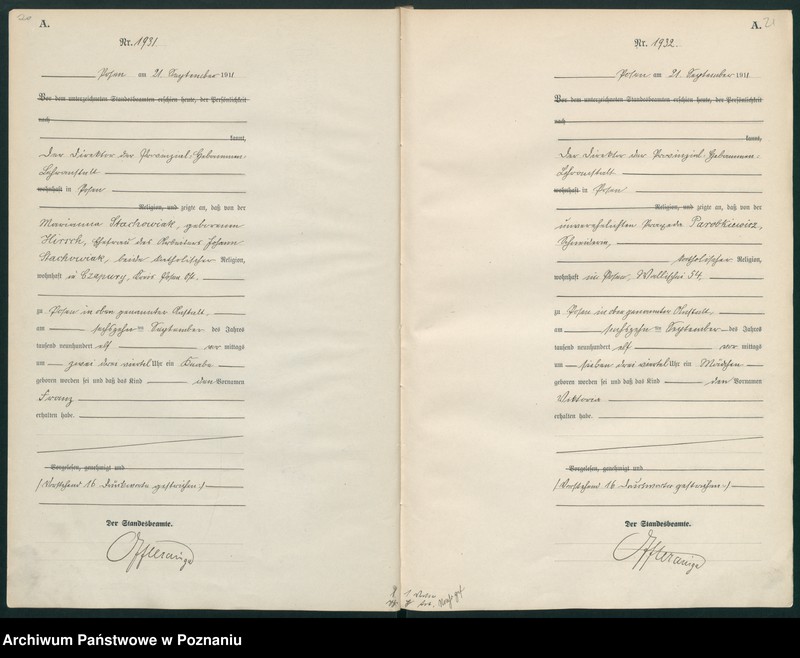 A.
Nr. 1931.
Posen am 21. September 1911
Vor dem unterzeichneten Standesbeamten erschien heute, der Persönlichkeit
nach
kannt,
Der Direktor der Provinzial-Hebammen-
Lehranstalt
wohnhaft in Posen
Religion, und zeigte an, daß von der
Marianna Stachowiak, geborenen
Hirsch, Ehefrau des Arbeiters Johann
Stachowiak, beide katholischer Religion,
wohnhaft in Czapury, Kreis Posen Ost.
zu Posen in oben genannter Anstalt,
am sechzehnten September des Jahres
tausend neunhundert elf vor mittags
um zwei drei viertel Uhr ein Knabe
geboren worden sei und daß das Kind den Vornamen
Franz
erhalten habe.
Vorgelesen, genehmigt und
(Vorstehend 16 Druckworte gestrichen.)
Der Standesbeamte.
A. 21
Nr. 1932.
Posen am 21. September 1911
Vor dem unterzeichneten Standesbeamten erschien heute, der Persönlichkeit
nach
kannt,
Der Direktor der Provinzial-Hebammen-
Lehranstalt
wohnhaft in Posen
Religion, und zeigte an, daß von der
unverehelichten Praxeda Parobkiewicz,
Schneiderin,
katholischer Religion,
wohnhaft in Posen, Wallischei 54,
zu Posen in oben genannter Anstalt,
am sechzehnten September des Jahres
tausend neunhundert elf vor mittags
um sieben drei viertel Uhr ein Mädchen
geboren worden sei und daß das Kind den Vornamen
Viktoria
erhalten habe.
Vorgelesen, genehmigt und
(Vorstehend 16 Druckworte gestrichen.)
Der Standesbeamte.
Archiwum Państwowe w Poznaniu